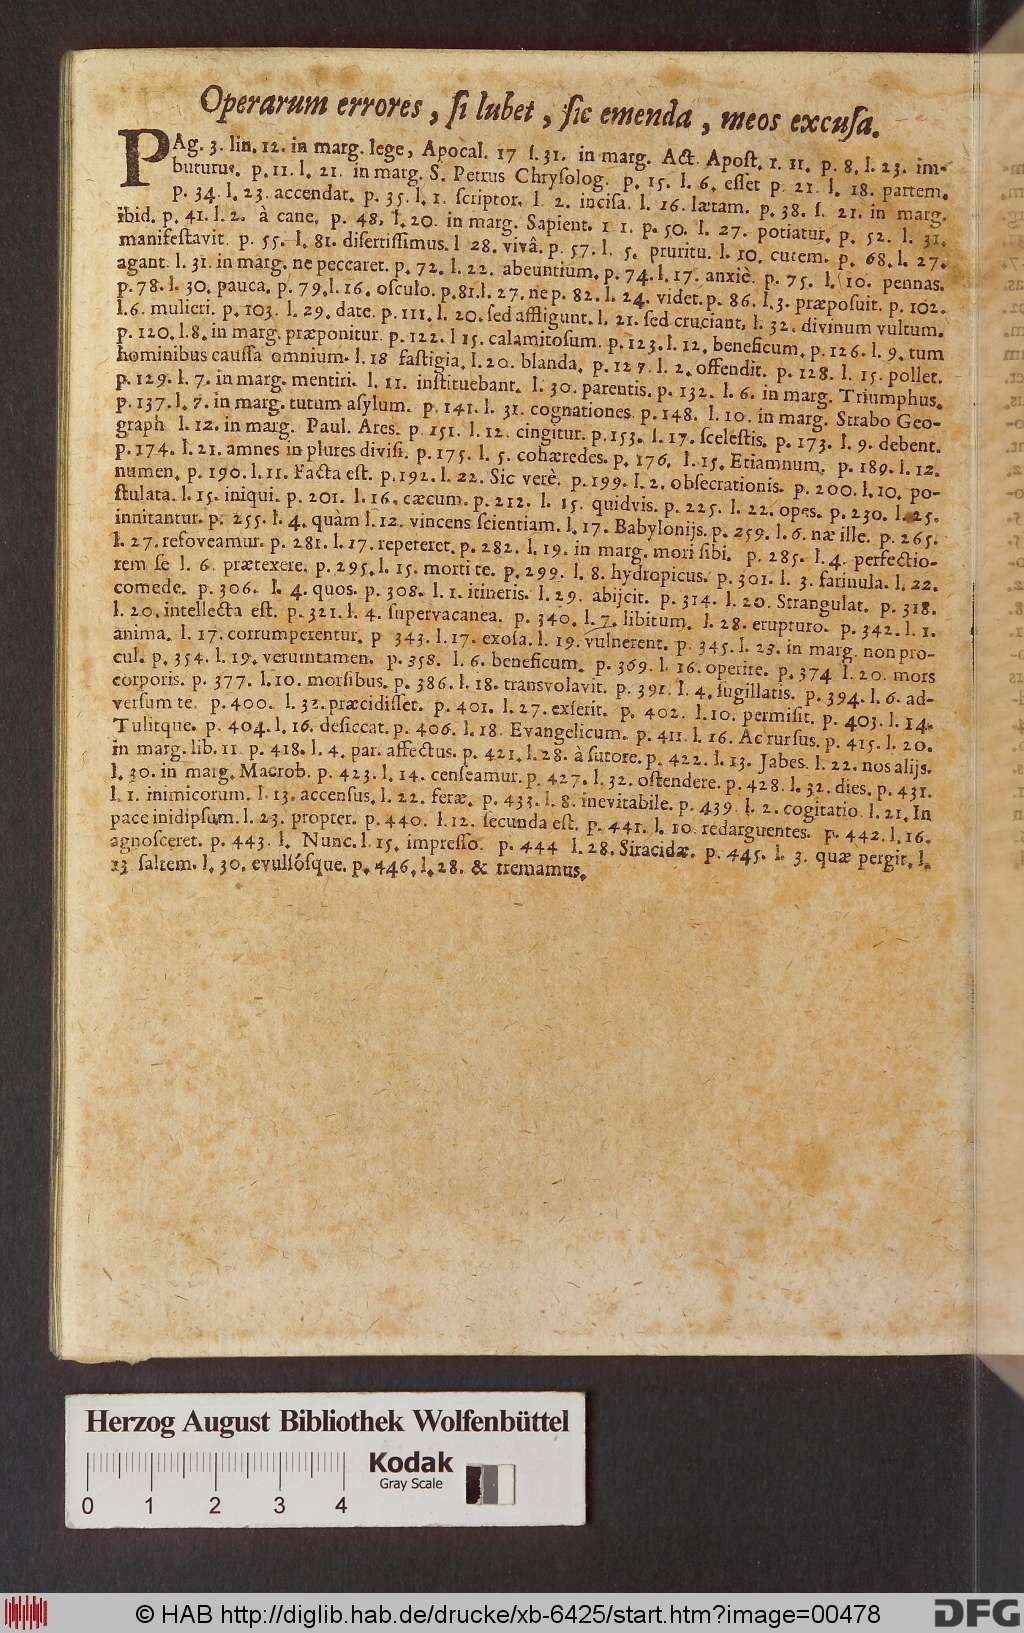 Operarum errores, ſi lubet, ſic emenda, meos excuſa.
PAg. 3. lin. 12. in marg. lege, Apocal. 17 l. 31. in marg. Act. Apoſt. 1. 11. p. 8. l. 23. im-
buturus. p. 11. l. 21. in marg. S. Petrus Chryſolog. p. 15. l. 6. eſſet p. 21. l. 18. partem.
p. 34. l. 23. accendat. p. 35. l. 1. ſcriptor. l. 2. inciſa. l. 16. lætam. p. 38. l. 21. in marg.
ibid. p. 41. l. 2. à cane. p. 48. l. 20. in marg. Sapient. 11. p. 50. l. 27. potiatur. p. 52. l. 31.
manifeſtavit. p. 55. l. 81. diſertiſſimus. l 28. vivâ. p. 57. l. 5. pruritu. l. 10. cutem. p. 68. l. 27.
agant. l. 31. in marg. ne peccaret. p. 72. l. 22. abeuntium. p. 74. l. 17. anxiè. p. 75. l. 10. pennas.
p. 78. l. 30. pauca. p. 79. l. 16. oſculo. p. 81. l. 27. ne p. 82. l. 24. videt. p. 86. l. 3. præpoſuit. p. 102.
l. 6. mulieri. p. 103. l. 29. date. p. 111. l. 20. ſed affligunt. l. 21. ſed cruciant. l. 32. divinum vultum.
p. 120. l. 8. in marg. præponitur. p. 122. l 15. calamitoſum. p. 123. l. 12. beneficum. p. 126. l. 9. tum
hominibus cauſſa omnium. l. 18 faſtigia. l. 20. blanda. p. 127. l. 2. offendit. p. 128. l. 15. pollet.
p. 129. l. 7. in marg. mentiri. l. 11. inſtituebant. l. 30. parentis. p. 132. l. 6. in marg. Triumphus.
p. 137. l. 7. in marg. tutum aſylum. p. 141. l. 31. cognationes. p. 148. l. 10. in marg. Strabo Geo-
graph l. 12. in marg. Paul. Ares. p. 151. l. 12. cingitur. p. 153. l. 17. ſceleſtis. p. 173. l. 9. debent.
p. 174. l. 21. amnes in plures diviſi. p. 175. l. 5. cohæredes. p. 176. l. 15. Etiamnum. p. 189. l. 12.
numen. p. 190. l. 11. Facta eſt. p. 192. l. 22. Sic verè. p. 199. l. 2. obſecrationis. p. 200. l. 10. po-
ſtulata. l. 15. iniqui. p. 201. l. 16. cæcum. p. 212. l. 15. quidvis. p. 225. l. 22. opes. p. 230. l. 25.
innitantur. p. 255. l. 4. quàm l. 12. vincens ſcientiam. l. 17. Babylonijs. p. 259. l. 6. næ ille. p. 265.
l. 27. refoveamur. p. 281. l. 17. repeteret. p. 282. l. 19. in marg. mori ſibi. p. 285. l. 4. perfectio-
rem ſe l. 6. prætexere. p. 295. l. 15. morti te. p. 299. l. 8. hydropicus. p. 301. l. 3. farinula. l. 22.
comede. p. 306. l. 4. quos. p. 308. l. 1. itineris. l. 29. abijcit. p. 314. l. 20. Strangulat. p. 318.
l. 20. intellecta eſt. p. 321. l. 4. ſupervacanea. p. 340. l. 7. libitum. l. 28. erupturo. p. 342. l. 1.
anima. l. 17. corrumperentur. p 343. l. 17. exoſa. l. 19. vulnerent. p. 345. l. 23. in marg. non pro-
cul. p. 354. l. 19. verumtamen. p. 358. l. 6. beneficum. p. 369. l. 16. operire. p. 374 l. 20. mors
corporis. p. 377. l. 10. morſibus. p. 386. l. 18. transvolavit. p. 391. l. 4. ſugillatis. p. 394. l. 6. ad-
verſum te. p. 400. l. 32. præcidiſſet. p. 401. l. 27. exſerit. p. 402. l. 10. permiſit. p. 403. l. 14.
Tulitque. p. 404. l. 16. deſiccat. p. 406. l. 18. Evangelicum. p. 411. l. 16. Ac rurſus. p. 415. l. 20.
in marg. lib. 11. p. 418. l. 4. par. affectus. p. 421. l. 28. à ſutore. p. 422. l. 13. Jabes. l. 22. nos alijs.
l. 30. in marg. Macrob. p. 423. l. 14. cenſeamur. p. 427. l. 32. oſtendere. p. 428. l. 32. dies. p. 431.
l. 1. inimicorum. l. 13. accenſus. l. 22. feræ. p. 433. l. 8. inevitabile. p. 439. l. 2. cogitatio. l. 21. In
pace inidipſum. l. 23. propter. p. 440. l. 12. ſecunda eſt. p. 441. l. 10. redarguentes. p. 442. l. 16.
agnoſceret. p. 443. l. Nunc. l. 15. impreſſo. p. 444 l. 28. Siracidæ. p. 445. l. 3. quæ pergit. l.
23 ſaltem. l. 30. evulſósque. p. 446. l. 28. & tremamus.
Herzog August Bibliothek Wolfenbüttel
Kodak
Gray Scale
0 1 2 3 4
© HAB http://diglib.hab.de/drucke/xb-6425/start.htm?image=00478
DFG